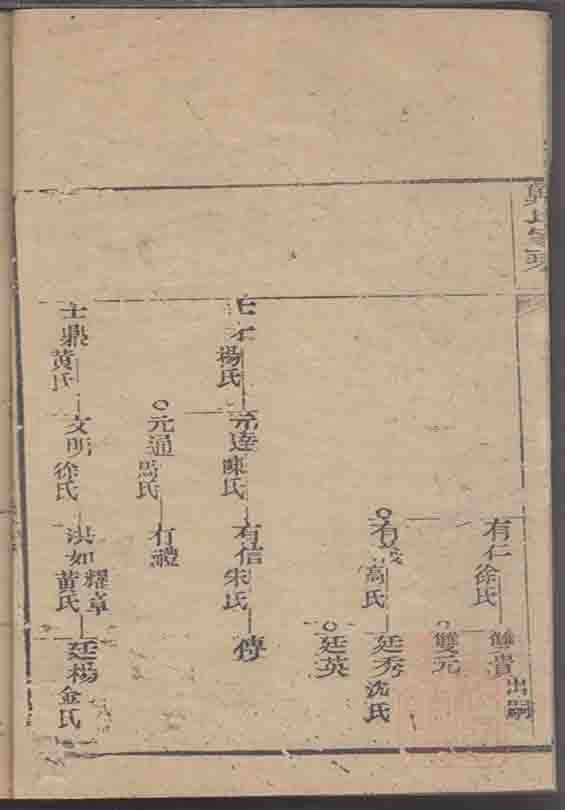 有仁徐氏
雙貴出嗣
雙元
有 高氏
廷秀沈氏
廷英
士 楊氏
元達陳氏
有信朱氏
傳
元通馮氏
有禮
士鼎黃氏
文明徐氏
洪如耀章黃氏
廷楊金氏